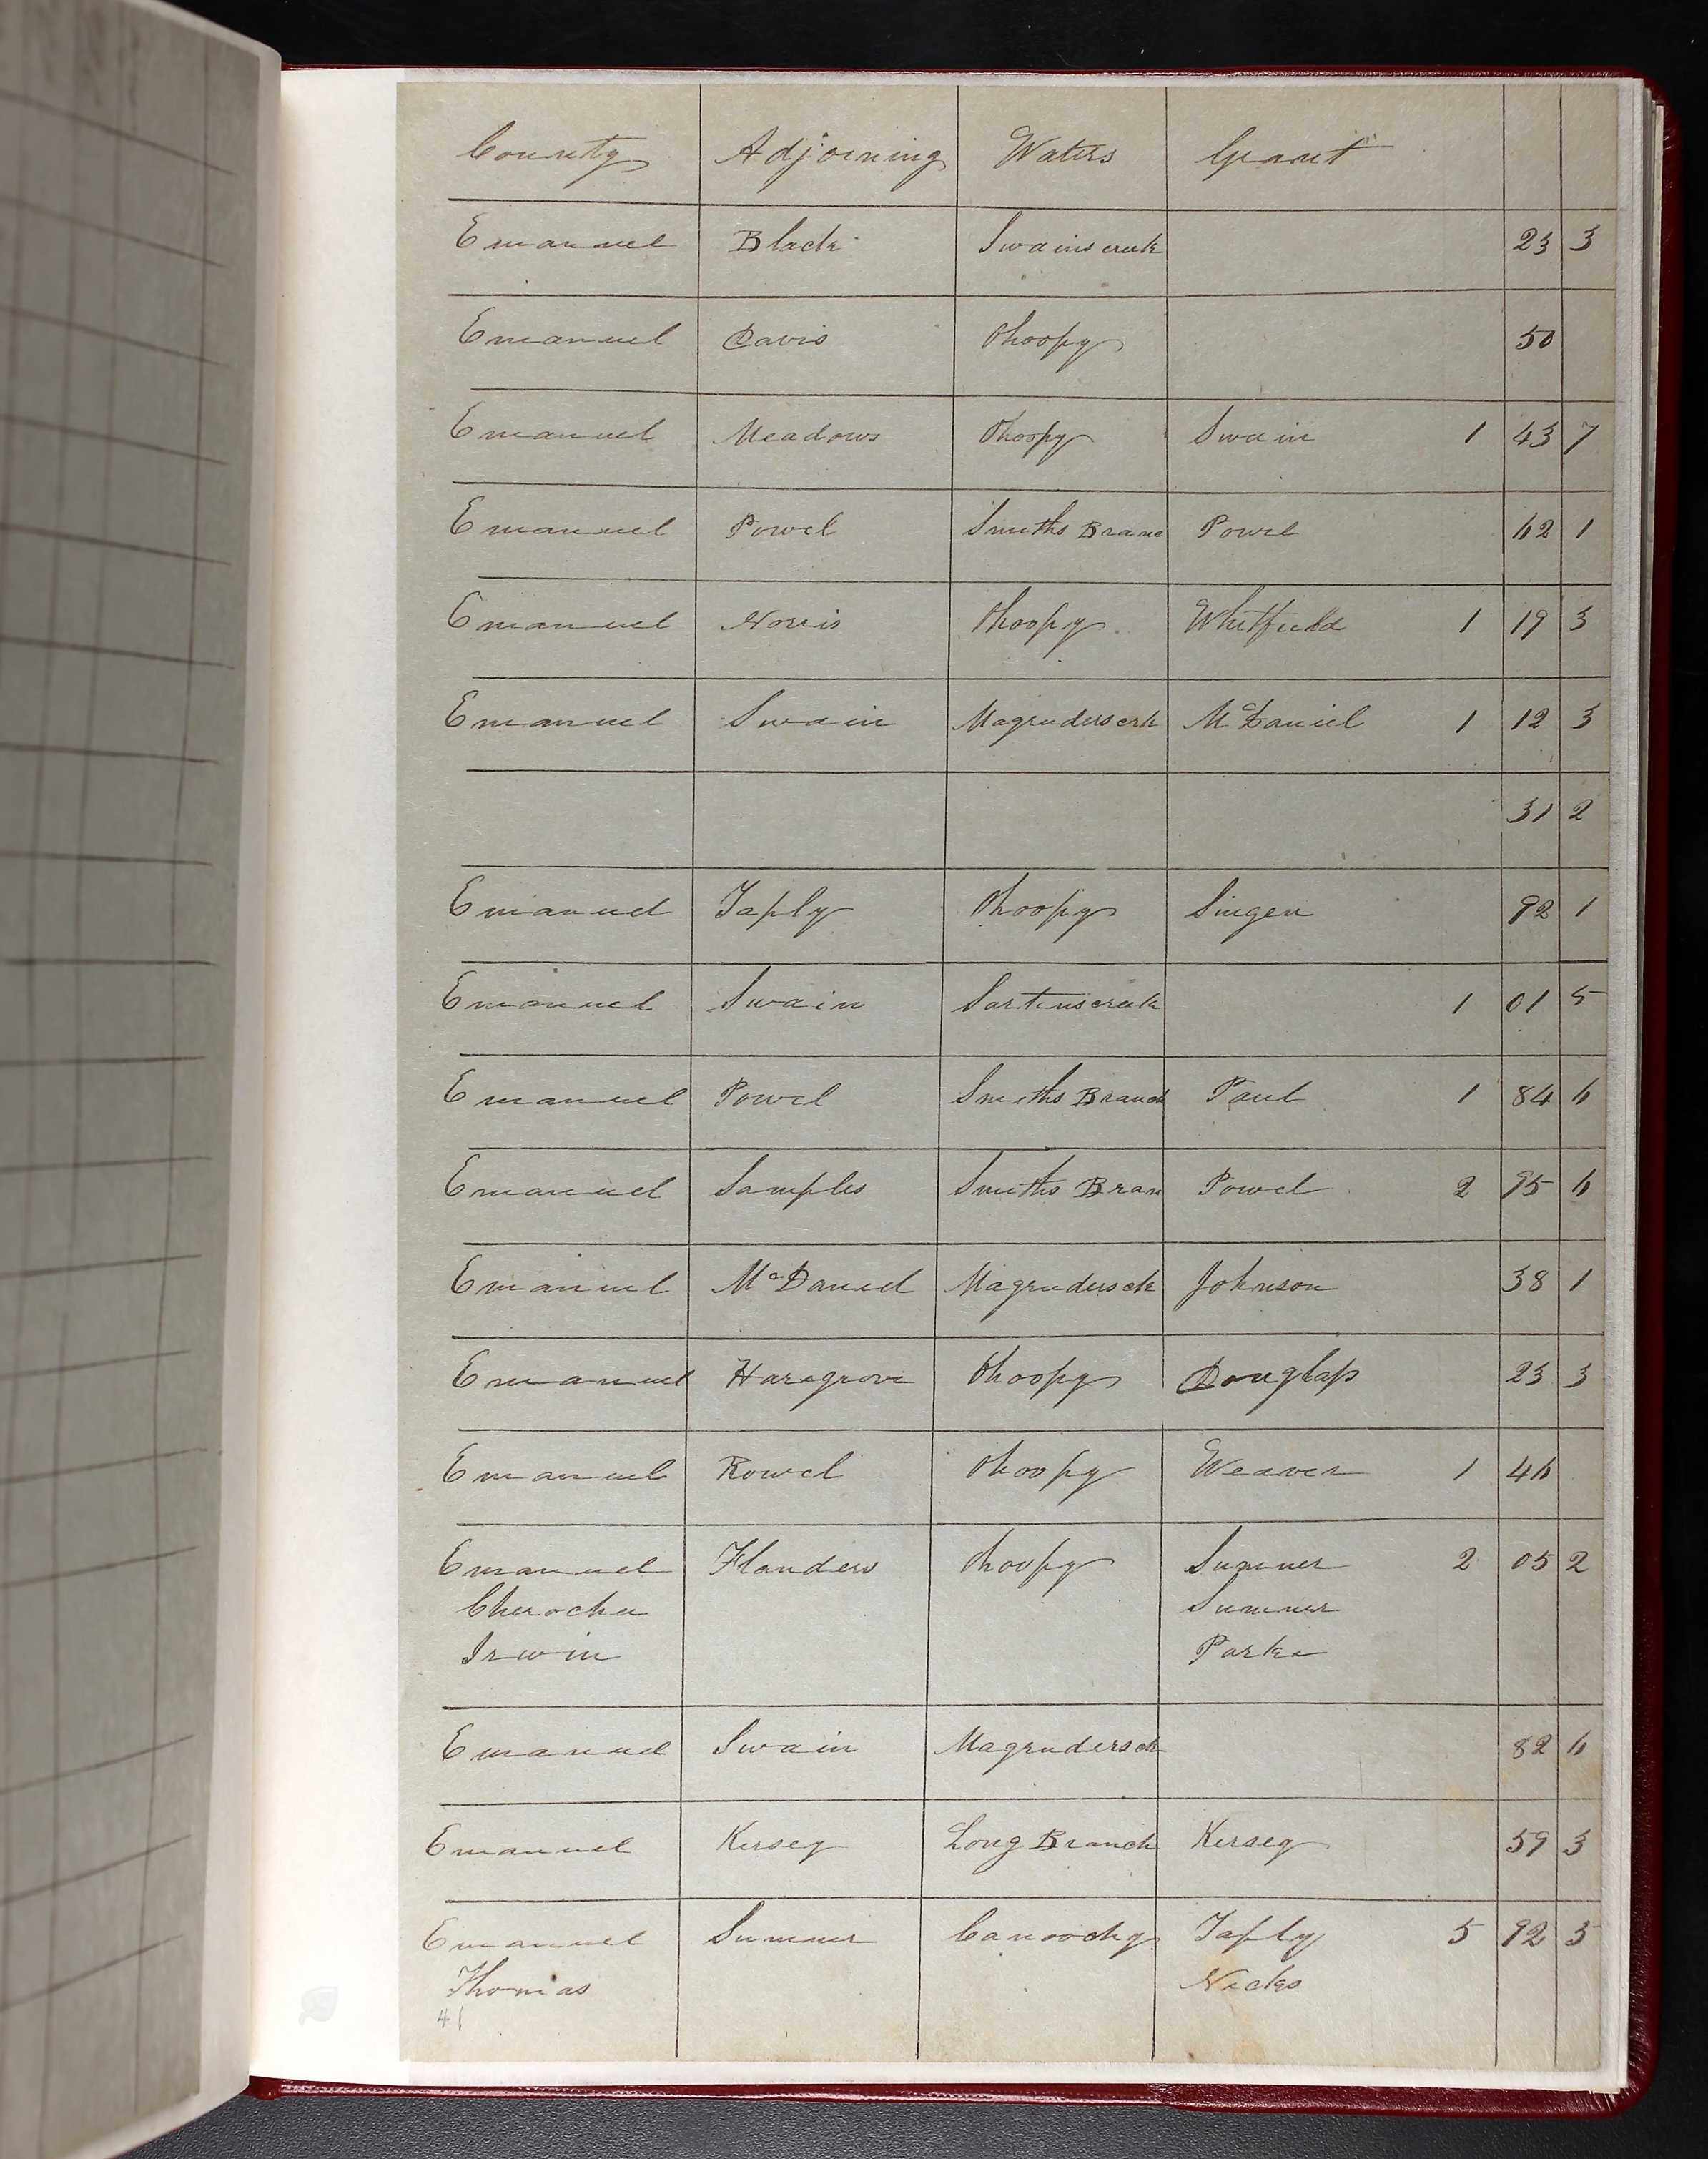 County Adjoining Waters Grant
Emanuel Black Swains creek 23 3
Emanuel Davis Ohoopy 50
Emanuel Meadows Ohoopy Swain 1 43 7
Emanuel Powel Smiths Branc Powel 62 1
Emanuel Norris Ohoopy Whitfield 1 19 3
Emanuel Swain Magruders crk McDaniel 1 12 3
31 2
Emanuel Taply Ohoopy 92 1
Emanuel Swain Sartins creek 1 01 5
Emanuel Powel Smiths Branch Paul 1 84 6
Emanuel Samples Smiths Bran Powel 2 95 6
Emanuel McDaniel Magruders ck Johnson 38 1
Emanuel Haregrove Ohoopy Douglass 23 3
Emanuel Rowel Ohoopy Weaver 1 46
Emanuel Flanders Ohoopy Sumner 2 05 2
Cherochee Sumner
Irwin Parke
Emanuel Swain Magruders ck 82 6
Emanuel Kersey Long Branch Kersey 59 3
Emanuel Sumner Canoochy Taply 5 92 5
Thomas Necks
41